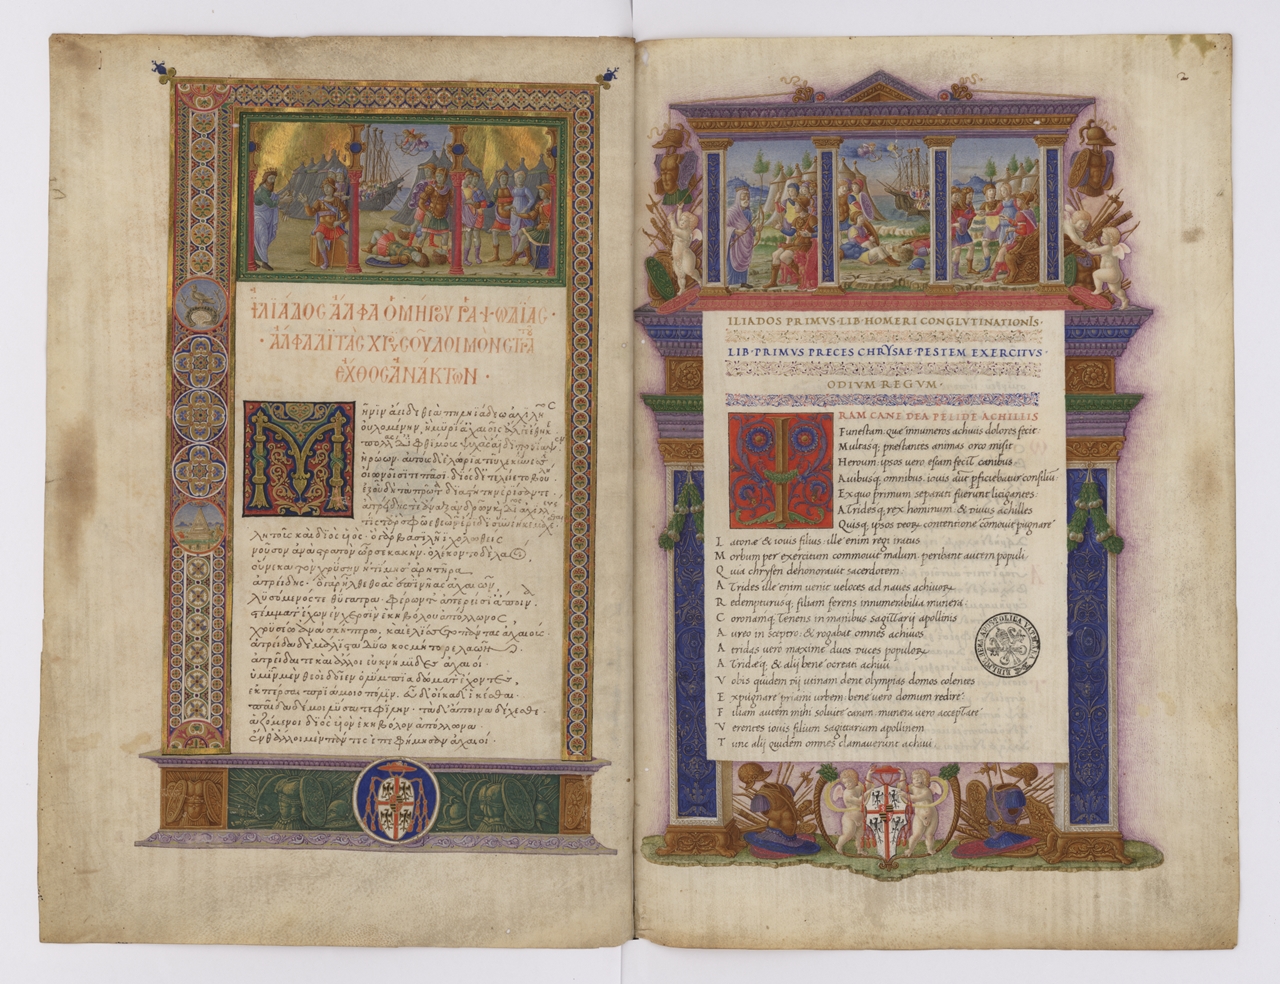 ἸΛΙΆΔΟΣ ἌΛΦΑ ὉΜΉΡΟΥ ΡΑ·Ψ·ΩΔΊΑΣ·
·ἌΛΦΑ ΛΙΤᾺΣ ΧΡΎΣΟΥ ΛΟΙΜῸΝ ΣΤΡΑΤΟΥ
ἜΧΘΟΣ ἈΝΆΚΤΩΝ·
Μ
ῆνιν ἄειδε θεὰ πηληϊάδεω ἀχιλῆος
οὐλομένην, ἣ μυρί' ἀχαιοῖς ἄλγε' ἔθηκε
πολλὰς δ' ἰφθίμους ψυχὰς ἄϊδι προΐαψεν
ἡρώων· αὐτοὺς δὲ ἑλώρια τεῦχε κύνεσσιν
οἰωνοῖσί τε πᾶσι· διὸς δ' ἐτελείετο βουλή
ἐξ οὗ δὴ τὰ πρῶτα διαστήτην ἐρίσαντε
ἀτρείδης τε ἄναξ ἀνδρῶν καὶ δῖος ἀχιλλεύς
τίς τάρ σφωε θεῶν ἔριδι ξυνέηκε μάχεσθαι
λητοῦς καὶ διὸς υἱός· ὁ γὰρ βασιλῆϊ χολωθεὶς
νοῦσον ἀνὰ στρατὸν ὦρσε κακήν· ὀλέκοντο δὲ λαοί
οὕνεκα τὸν χρύσην ἠτίμησ' ἀρητῆρα
ἀτρείδης· ὁ γὰρ ἦλθε θοὰς ἐπὶ νῆας ἀχαιῶν
λυσόμενός τε θύγατρα· φέρων τ' ἀπερείσι' ἄποινα
στέμματ' ἔχων ἐν χερσὶν ἑκηβόλου ἀπόλλωνος
χρυσέῳ ἀνὰ σκήπτρῳ, καὶ ἐλίσσετο πάντας ἀχαιούς
ἀτρείδα δὲ μάλιστα δύω κοσμήτορε λαῶν
ἀτρεῖδαι τε καὶ ἄλλοι ἐϋκνήμιδες ἀχαιοί
ὑμῖν μὲν θεοὶ δοῖεν ὀλύμπια δώματ' ἔχοντες
ἐκπέρσαι πριάμοιο πόλιν, εὖ δ' οἴκαδ' ἱκέσθαι
παῖδα δ' ἐμοὶ λῦσαί τε φίλην· τὰ δ' ἄποινα δέχεσθε
ἁζόμενοι διὸς υἱὸν ἑκηβόλον ἀπόλλωνα
ἔνθ' ἄλλοι μὲν πάντες ἐπευφήμησαν ἀχαιοί
2
ILIADOS PRIMVS·LIB·HOMERI CONGLVTINATIONIS·
LIB·PRIMVS PRECES CHRYSAE·PESTEM EXERCITVS·
ODIVM REGVM·
I
RAM CANE DEA PELIDE ACHILLIS
Funestam, quæ innumeros achiuis dolores fecit
Multasq; præstantes animas orco misit
Heroum: ipsos vero escam fecit canibus
Auibusq; omnibus: iouis aut pficiebatur consiliũ
Ex quo primum separati fuerunt litigantes
ATridesq; rex hominum & diuus achilles
Quisq; ipsos deoꝝ contentione comouit pugnare
L atonæ & iouis filius: ille enim regi iratus
M orbum per exercitum commouit malum, peribant autem populi
Q uia chrysen dehonorauit sacerdotem
A Trides ille enim uenit veloces ad naues achiuoꝝ
R edempturusq; filiam ferens innumerabilia munera
C oronamq; tenens in manibus sagittarij apollinis
A ureo in sceptro: & rogabat omnes achiuos
A tridas vero maxime duos duces populoꝝ
A Tridæq; & alij bene ocreati achiui
V obis quidem dij utinam dent olympias domos colentes
E xpugnare priami urbem: bene vero domum redire
F iliam autem mihi soluite caram, munera vero acceptate
V erentes iouis filium sagittarium apollinem
T unc alij quidem omnes clamauerunt achiui